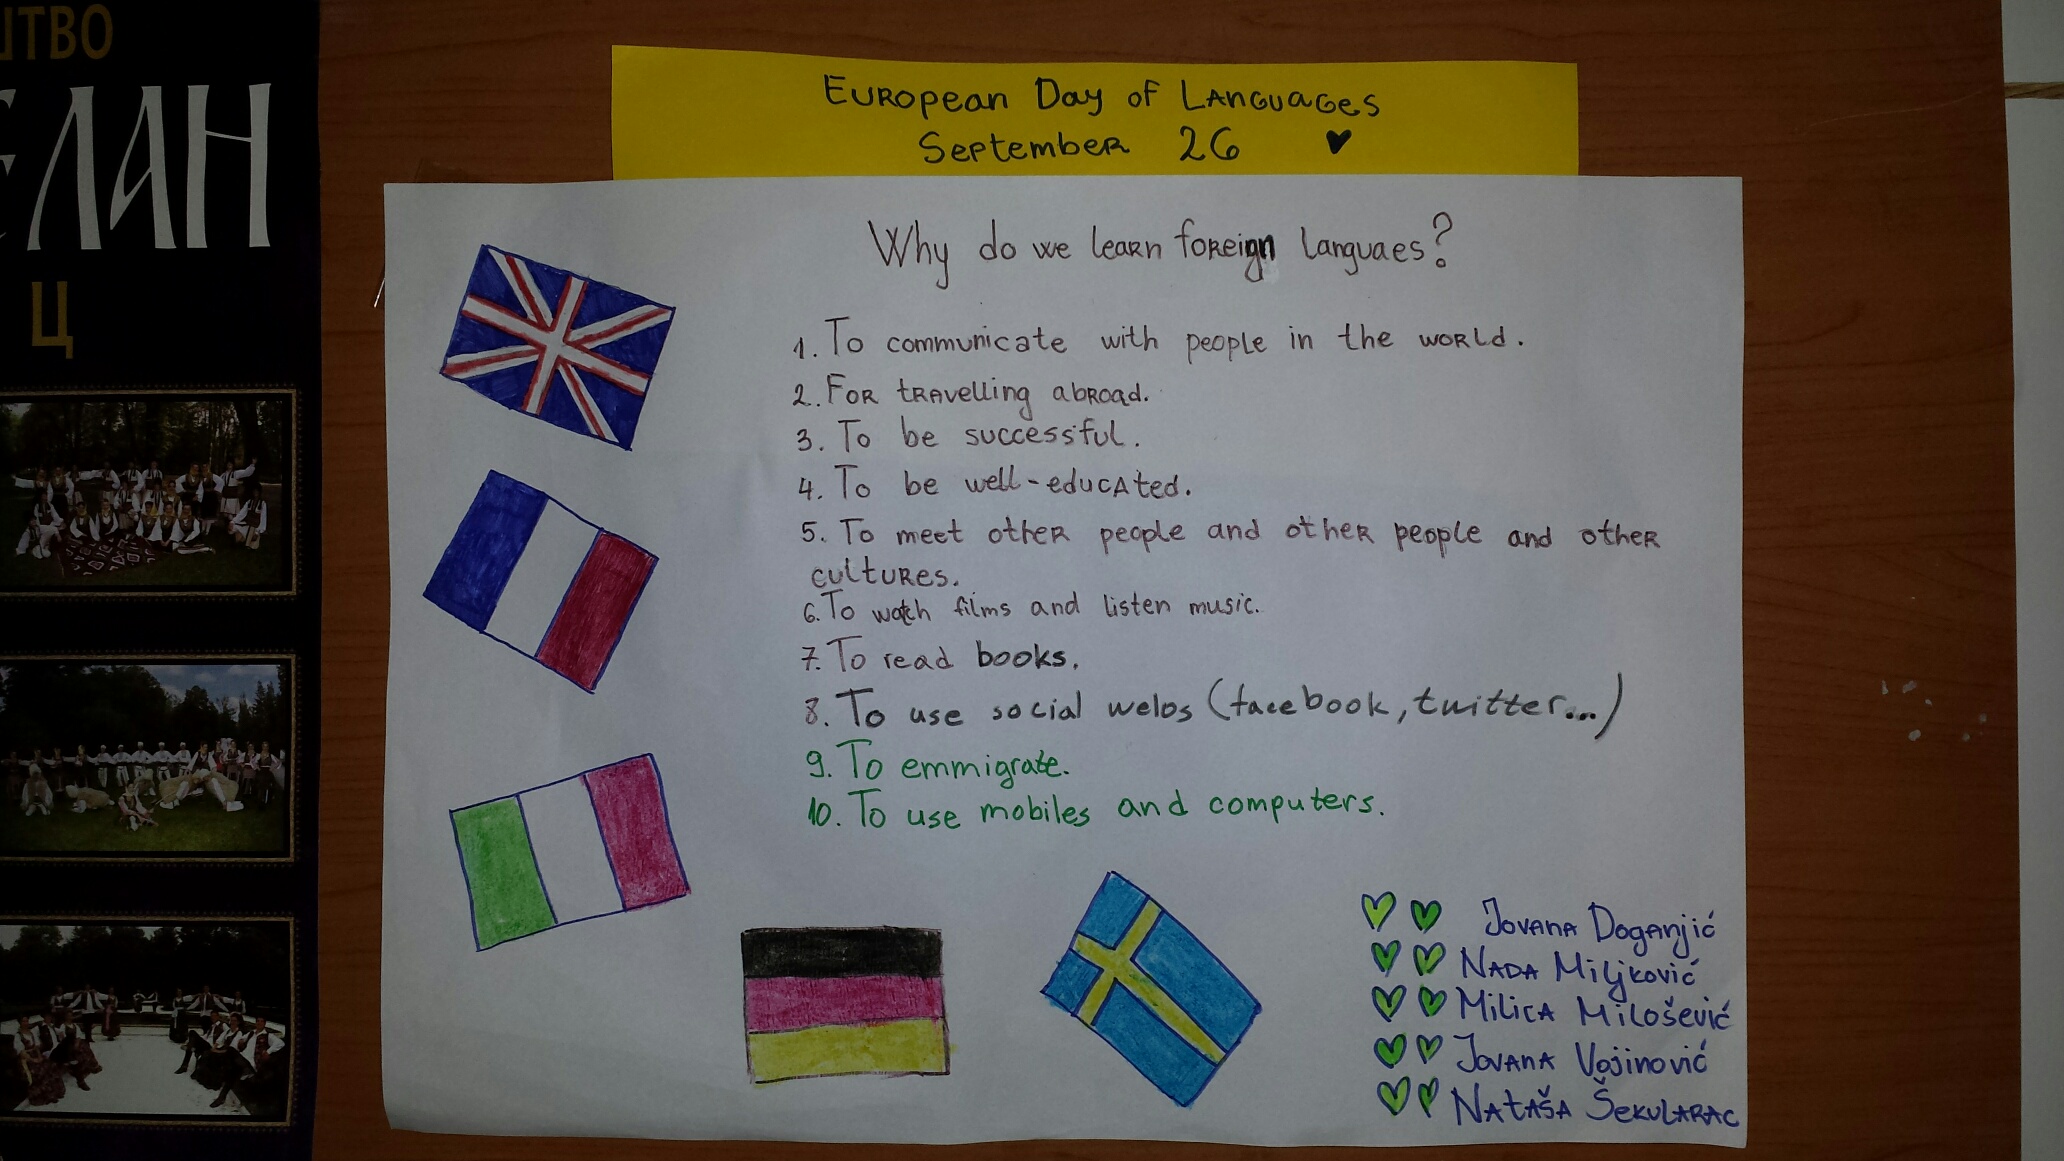 ШТВО
ЛАН
Ц
EUROpean Day of LANGUaGes
SepтembeR 26
Why do we leaRn foReign languaes?
1. To communicate with people in the woRld.
2. FoR tRAvelling abRoad.
3. To be successful.
4. To be well-educAted.
5. To meet otheR people and otheR people and otheR
cultuRes.
6. To watch films and listen music.
7. To read books.
8. To use social webs (facebook, twitter...)
9. To emmigrate.
10. To use mobiles and computers.
Jovana Doganjić
Nada Miljković
Milica Milošević
Jovana Vojinović
Nataša Šekularac